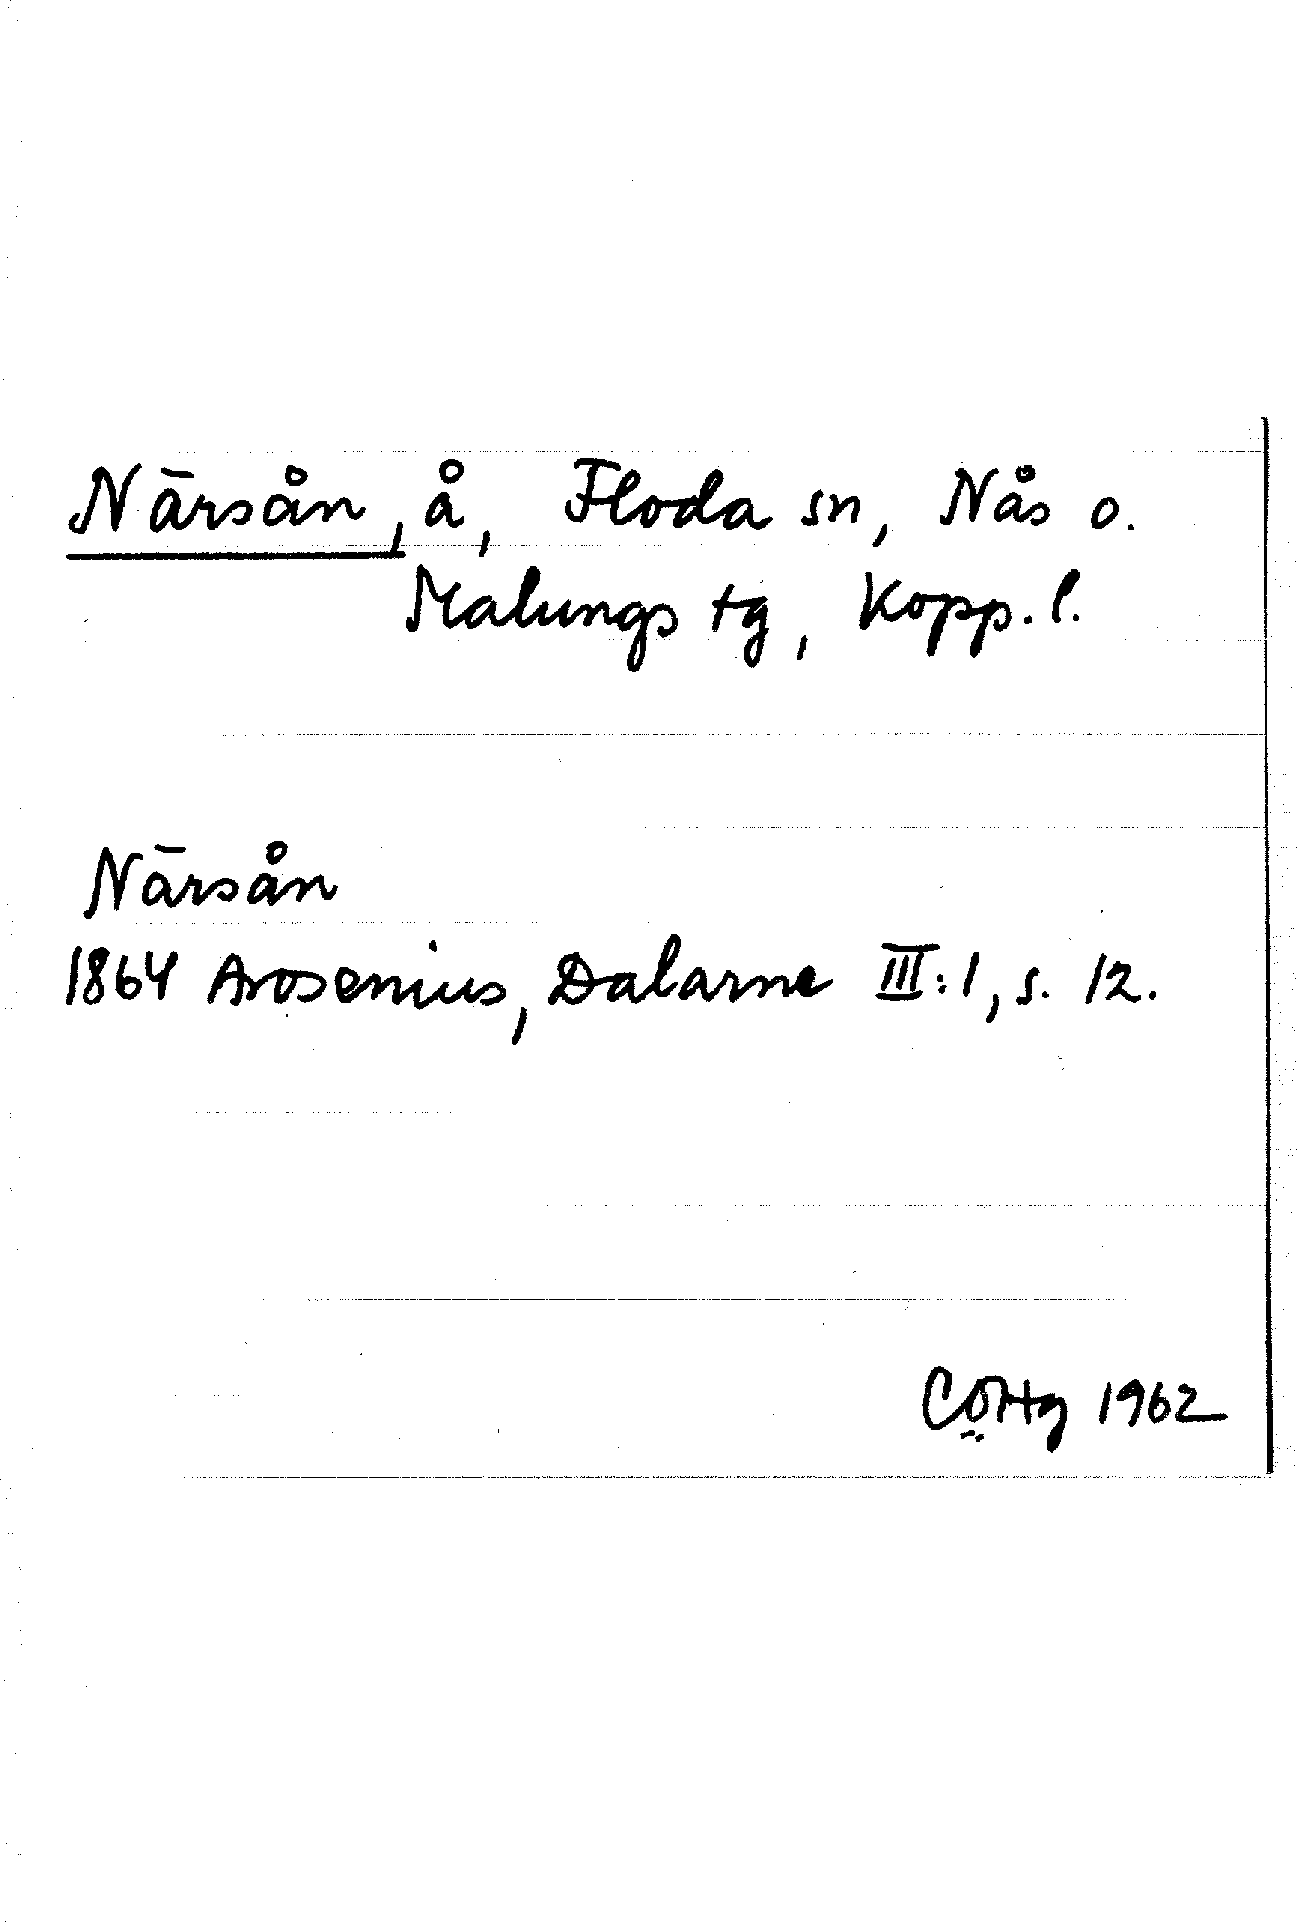 Närsån, å, Floda sn, Nås o.
Malungs tg, Kopp. l.
Närsån
1864 Arosenius, Dalarne III:1, s. 12.
CÖHg 1962